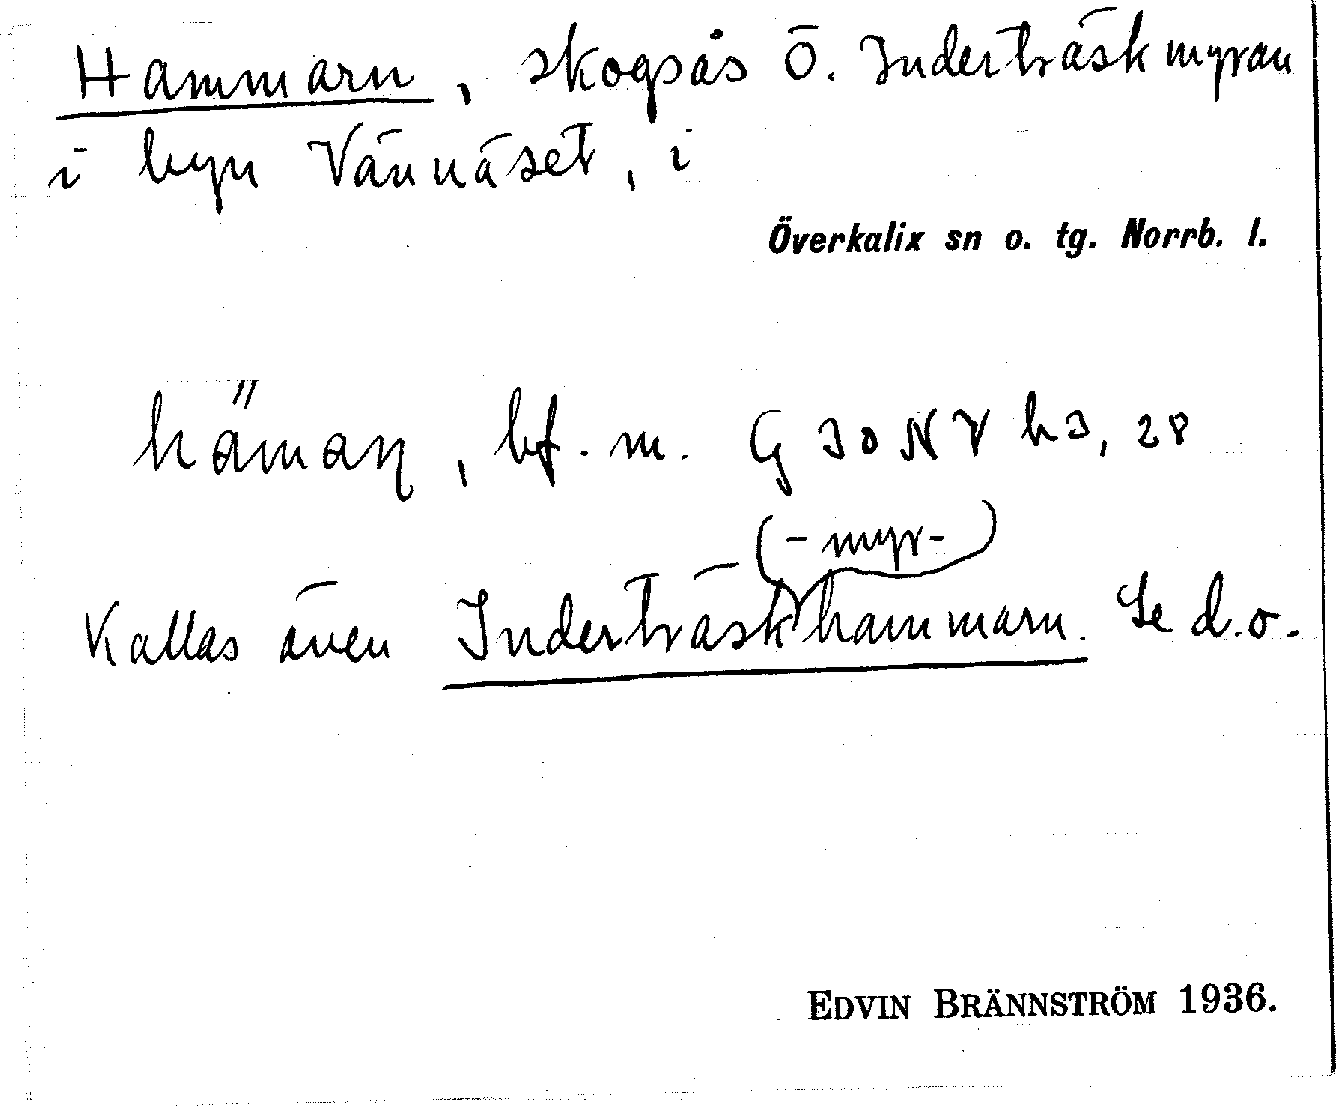 Hammarn, skogsås Ö. Inderträskmyran
i byn Vännäset, i
Överkalix sn o. tg. Norrb. l.
häman, bf. m. G 30 NV h3, 28
(-myr-)
Kallas även Inderträskhammarn. Se d.o.
EDVIN BRÄNNSTRÖM 1936.